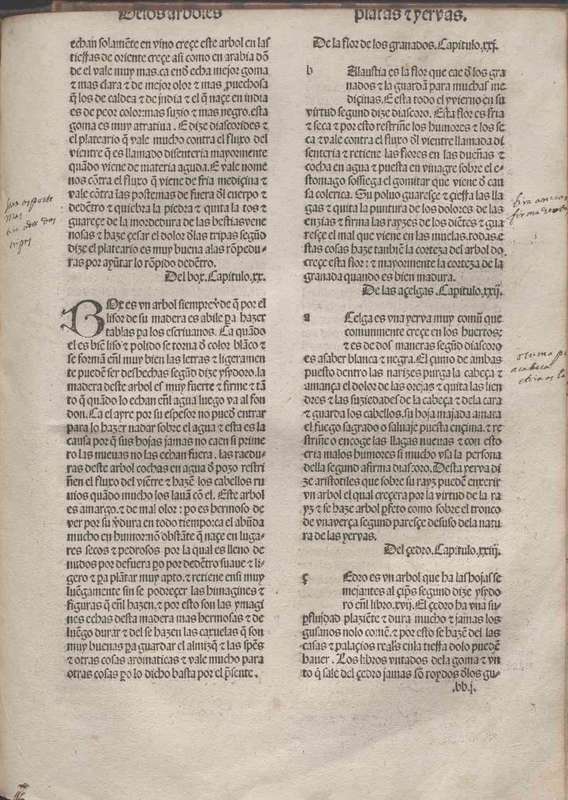 Delos arboles
echan solamẽte en vino creçe este arbol en las
tierras de oriente creçe asi como en arabia dõ
de el vale muy mas. ca enõ echa mejor goma
ꞇ mas clara ꞇ de mejor olor ꞇ mas ꝓuechosa
q̃ los de caldea ꞇ de jndia ꞇ el q̃ naçe en india
es de peor color: mas suzio ꞇ mas negro. esta
goma es muy atratiua. E dize diascorides ꞇ
el plateario q̃ vale mucho contra el fluxo del
vientre q̃ es llamado disenteria mayormente
quãdo viene de materia aguda. E vale nome
nos cõtra el fluxo q̃ viene de fria mediçina ꞇ
vale cõtra las postemas de fuera õl cuerpo ꞇ
de dẽtro ꞇ quiebra la piedra ꞇ quita la tos ꞇ
guareçe de la mordedura de las bestias vene
nosas ꞇ haze çesar el dolor õlas tripas segũd
dize el plateario es muy buena alas rõpedu-
ras por ayũtar lo rõpido dedẽtro.
Del box. Capitulo. xx.
BOx es vn arbol siempre ṽde q̃ por el
lisor de su madera es abile pa hazer
tablas pa los escriuanos. Ca quãdo
el es biẽ liso ꞇ polido se torna õ color blãco ꞇ
se formã enl̃ muy bien las letras ꞇ ligeramẽ
te puedẽ ser desbechas segũd dize ysydoro. la
madera deste arbol es muy fuerte ꞇ firme ꞇ tã
to q̃ quãdo lo echan enl̃ agua luego va al fon
don. Ca el ayre por su espesor no pued̃ entrar
para lo hazer nadar sobre el agua ꞇ esta es la
causa por q̃ sus hojas jamas no caen si prime
ro las nueuas no las echan fuera. las raedu-
ras deste arbol cochas en agua õ pozo restri
ñen el fluxo del viẽtre ꞇ hazẽ los cabellos ru
uios quãdo mucho los lauã cõ el. Este arbol
es amargo. ꞇ de mal olor: po es hermoso de
ver por su ṽdura en todo tiempo: ca el abũda
mucho en humor: nõ obstãte q̃ naçe en luga-
res secos ꞇ pedrosos por la qual es lleno de
nudos por defuera po por dedẽtro suaue ꞇ li-
gero ꞇ pa plãtar muy apto. ꞇ retiene ensi muy
luẽgamente sin se podreçer las himagines ꞇ
figuras q̃ enl̃ hazen. ꞇ por esto son las ymagi
nes echas desta madera mas hermosas ꞇ de
luẽgo durar ꞇ del se hazen las caxuelas q̃ son
muy buenas pa guardar el almizq̃ ꞇ las spẽs
ꞇ otras cosas aromaticas ꞇ vale mucho para
otras cosas po lo dicho basta por el p̃sente.
plãtas ꞇ yeruas.
De la flor de los granados. Capitulo. xxj.
b Alaustia es la flor que cae õ los gra
nados ꞇ la guardã para muchas me
diçinas. E esta todo el yvierno en su
virtud segund dize diascoro. Esta flor es fria
ꞇ seca ꞇ por esto restriñe los humores ꞇ los se
ca ꞇ vale contra el fluxo õl vientre llamada di
senteria ꞇ retiene las flores en las dueñas ꞇ
cocha en agua ꞇ puesta en vinagre sobre el e-
stomago sossiega el gomitar que viene õ cau
sa colerica. Su poluo guaresçe ꞇ çierra las lla
gas ꞇ quita la puntura de los dolores de las
enzias ꞇ firma las rayzes de los diẽtes ꞇ gua-
resçe el mal que viene en las muelas. todas e-
stas cosas haze tanbiẽ la corteza del arbol do
creçe esta flor: ꞇ mayormente la corteza de la
granada quando es bien madura.
De las açelgas. Capitulo. xxij.
a Celga es vna yerua muy comũ que
comunmente creçe en los huertos;
ꞇ es de dos maneras segũd diascoro
es asaber blanca ꞇ negra. El çumo de ambas
puesto dentro las narizes purga la cabeça ꞇ
amança el dolor de las orejas ꞇ quita las lien
dres ꞇ las suziedades de la cabeça ꞇ dela cara
ꞇ guarda los cabellos. su hoja majada amata
el fuego sagrado o saluaje puesta ençima. ꞇ re
striñe o encoge las llagas nueuas ꞇ con esto
cria malos humores si mucho vsa la persona
della segund afirma dias:oro. Desta yerua di
ze aristotiles que sobre su rayz puedẽ enxerir
vn arbol el qual creçera por la virtud de la ra
yz ꞇ se haze arbol p̃feto como sobre el tronco
de vna verça segund paresçe desuso dela natu
ra de las yeruas.
Del çedro. Capitulo. xxiij.
ç Edro es vn arbol que ha las hojas se
mejantes al çip̃s segund dize ysydo
ro enl̃ libro. xvij. El çedro ha vna su-
ꝑfluidad plaziẽte ꞇ dura mucho ꞇ jamas los
gusanos nolo comẽ. ꞇ por esto se hazẽ del las
casas ꞇ palaçios reales enla tierra dolo puedẽ
hauer. Los libros vntados dela goma ꞇ vn
to q̃ sale del çedro jamas son roydos õlos gu-
bb.j.